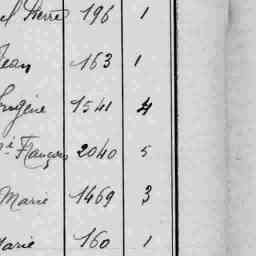 Pierre 196 1
Jean 163 1
Eugène 1541 4
François 2040 5
Marie 1469 3
Marie 160 1